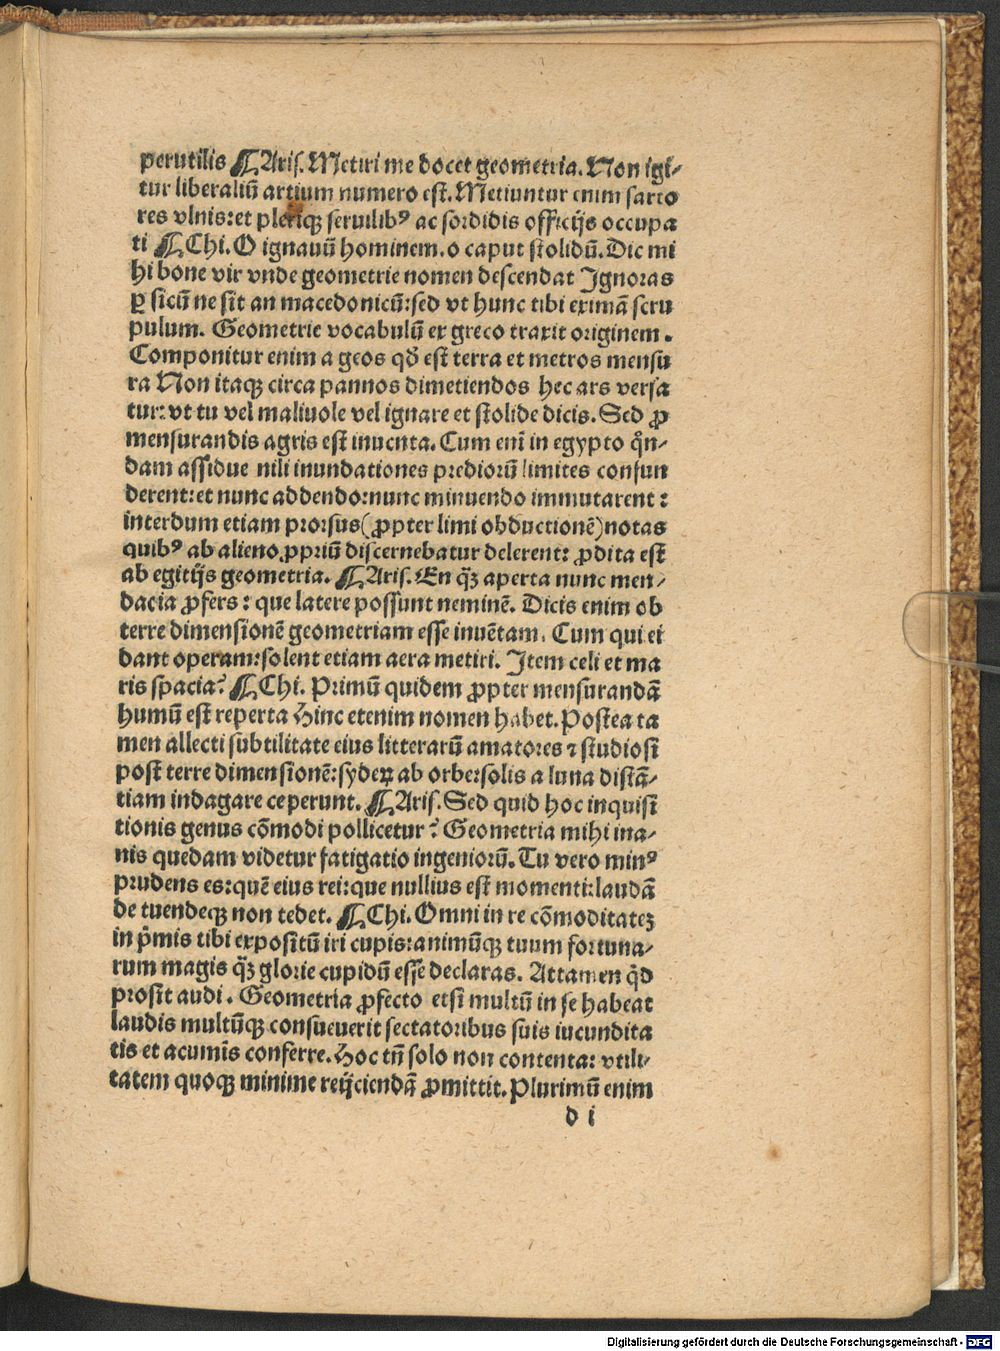 perutilis ¶Aris. Metiri me docet geometria. Non igi-
tur liberaliū artium numero est. Metiuntur enim sarto
res vlnis: et pleriqꝫ seruilibꝰ ac sordidis officijs occupa
ti ¶Chi. O ignauū hominem. o caput stolidū. Dic mi
hi bone vir vnde geometrie nomen descendat Ignoras
ꝑ sicū ne sit an macedonicū: sed vt hunc tibi eximā scru
pulum. Geometrie vocabulū ex greco traxit originem.
Componitur enim a geos qd̄ est terra et metros mensu
ra Non itaqꝫ circa pannos dimetiendos hec ars versa
tur: vt tu vel maliuole vel ignare et stolide dicis. Sed ꝓ
mensurandis agris est inuenta. Cum eni̅ in egypto qn̄-
dam assidue nili inundationes prediorū limites confun
derent: et nunc addendo: nunc minuendo immutarent:
interdum etiam prorsus (ꝓpter limi obductionē) notas
quibꝰ ab alieno ꝓpriū discernebatur delerent: ꝓdita est
ab egitijs geometria. ¶Aris. En qꝫ̄ aperta nunc men-
dacia ꝓfers: que latere possunt neminē. Dicis enim ob
terre dimensionē geometriam esse inuētam. Cum qui ei
dant operam: solent etiam aera metiri. Item celi et ma
ris spacia? ¶Chi. Primū quidem ꝓpter mensurandā
humū est reperta Hinc etenim nomen habet. Postea ta
men allecti subtilitate eius litterarū amatores ⁊ studiosi
post terre dimensionē: syderꝝ ab orbe: solis a luna distā-
tiam indagare ceperunt. ¶Aris. Sed quid hoc inquisi
tionis genus cōmodi pollicetur? Geometria mihi ina-
nis quedam videtur fatigatio ingeniorū. Tu vero minꝰ
prudens es: quē eius rei: que nullius est momenti: laudā
de tuendeqꝫ non tedet. ¶Chi. Omni in re cōmoditatēꝫ
in p̄mis tibi expositū iri cupis: animūqꝫ tuum fortuna-
rum magis qꝫ̄ glorie cupidū esse declaras. Attamen qd̄
prosit audi. Geometria ꝓfecto etsi multū in se habeat
laudis multūqꝫ consueuerit sectatoribus suis iucundita
tis et acumīs conferre. Hoc tn̄ solo non contenta: vtili-
tatem quoqꝫ minime reijciendā ꝓmittit. Plurimū enim
d i
Digitalisierung gefördert durch die Deutsche Forschungsgemeinschaft - DFG